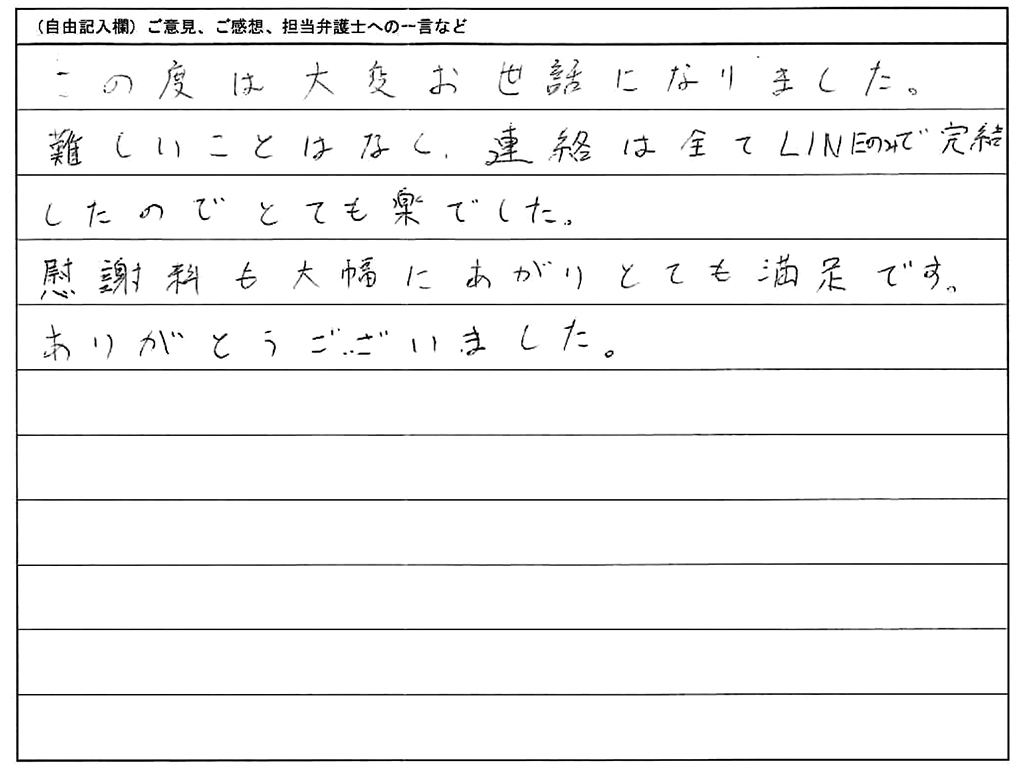 （自由記入欄）ご意見、ご感想、担当弁護士への一言など
この度は大変お世話になりました。
難しいことはなく、連絡は全てLINEのみで完結
したのでとても楽でした。
慰謝料も大幅にあがりとても満足です。
ありがとうございました。